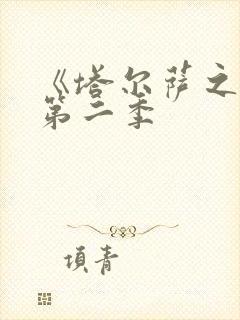 《塔尔萨之
第二季
項青